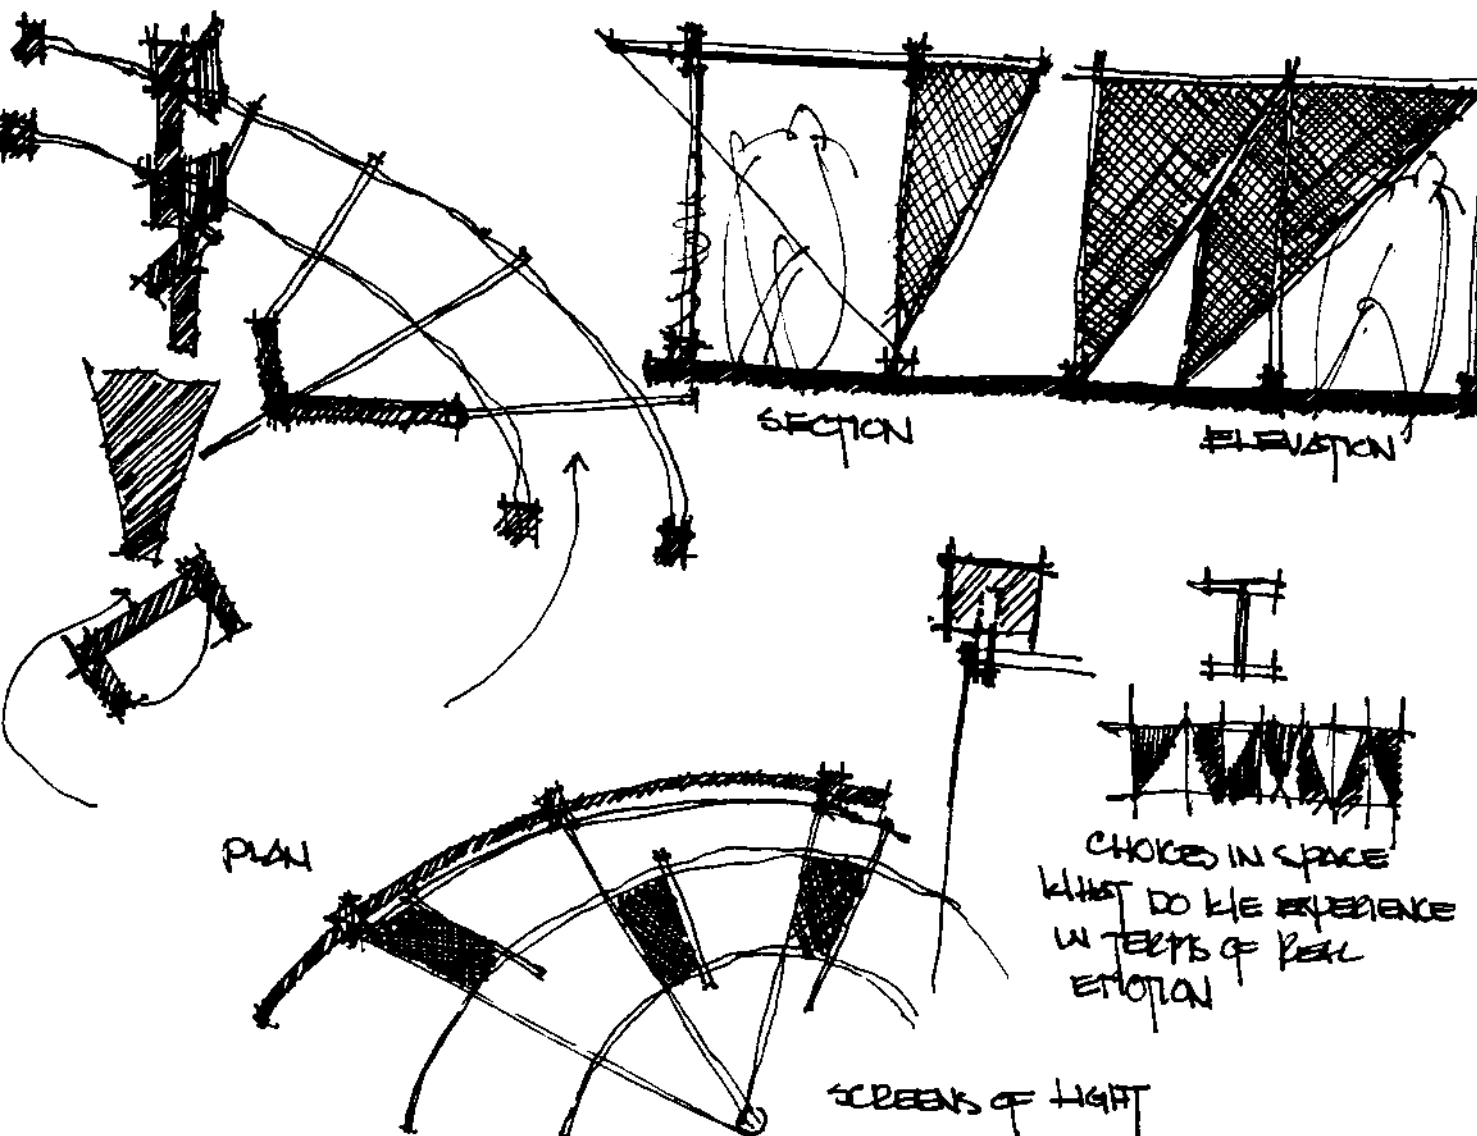 SECTION
ELEVATION
PLAN
CHOICES IN SPACE
WHAT DO WE EXPERIENCE
IN TERMS OF REAL
EMOTION
SCREENS OF LIGHT